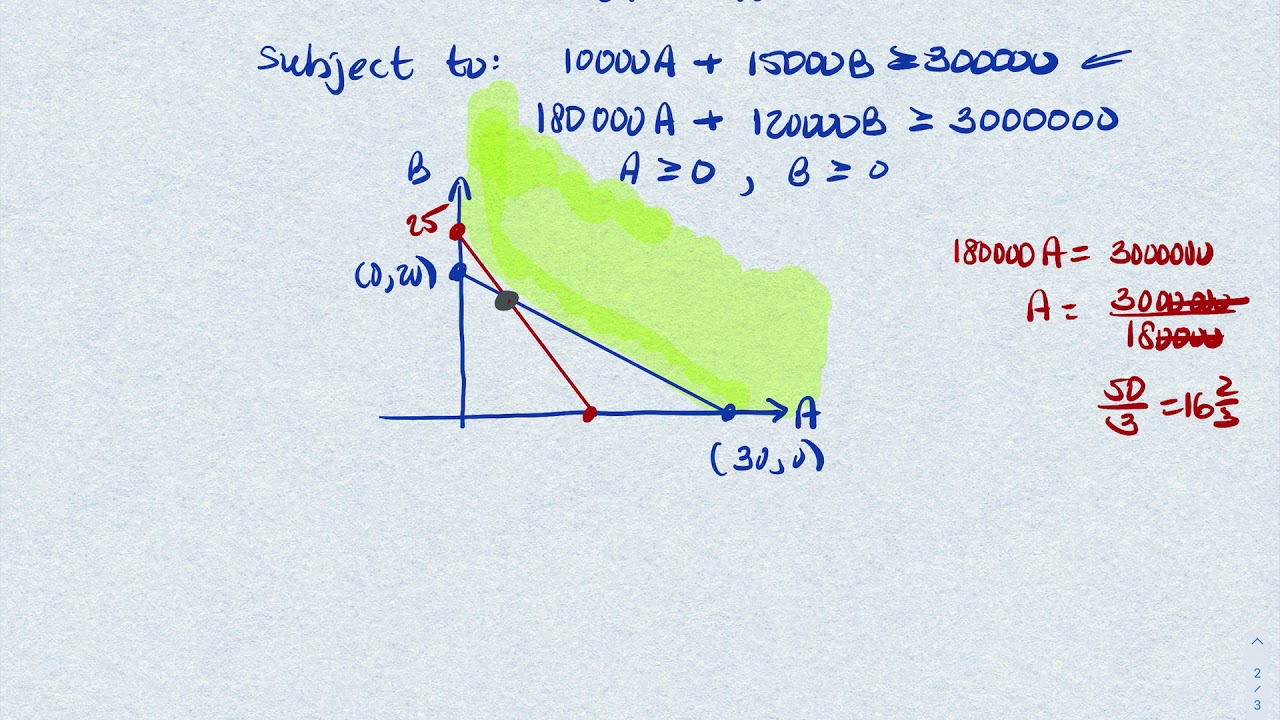 Subject to: 10000A + 15000B ≥ 300000
180000A + 120000B ≥ 3000000
A ≥ 0 , B ≥ 0
B
25
(0,20)
A
(30,0)
180000A = 3000000
A = 3000000/180000
50/3 = 16 2/3
2/3